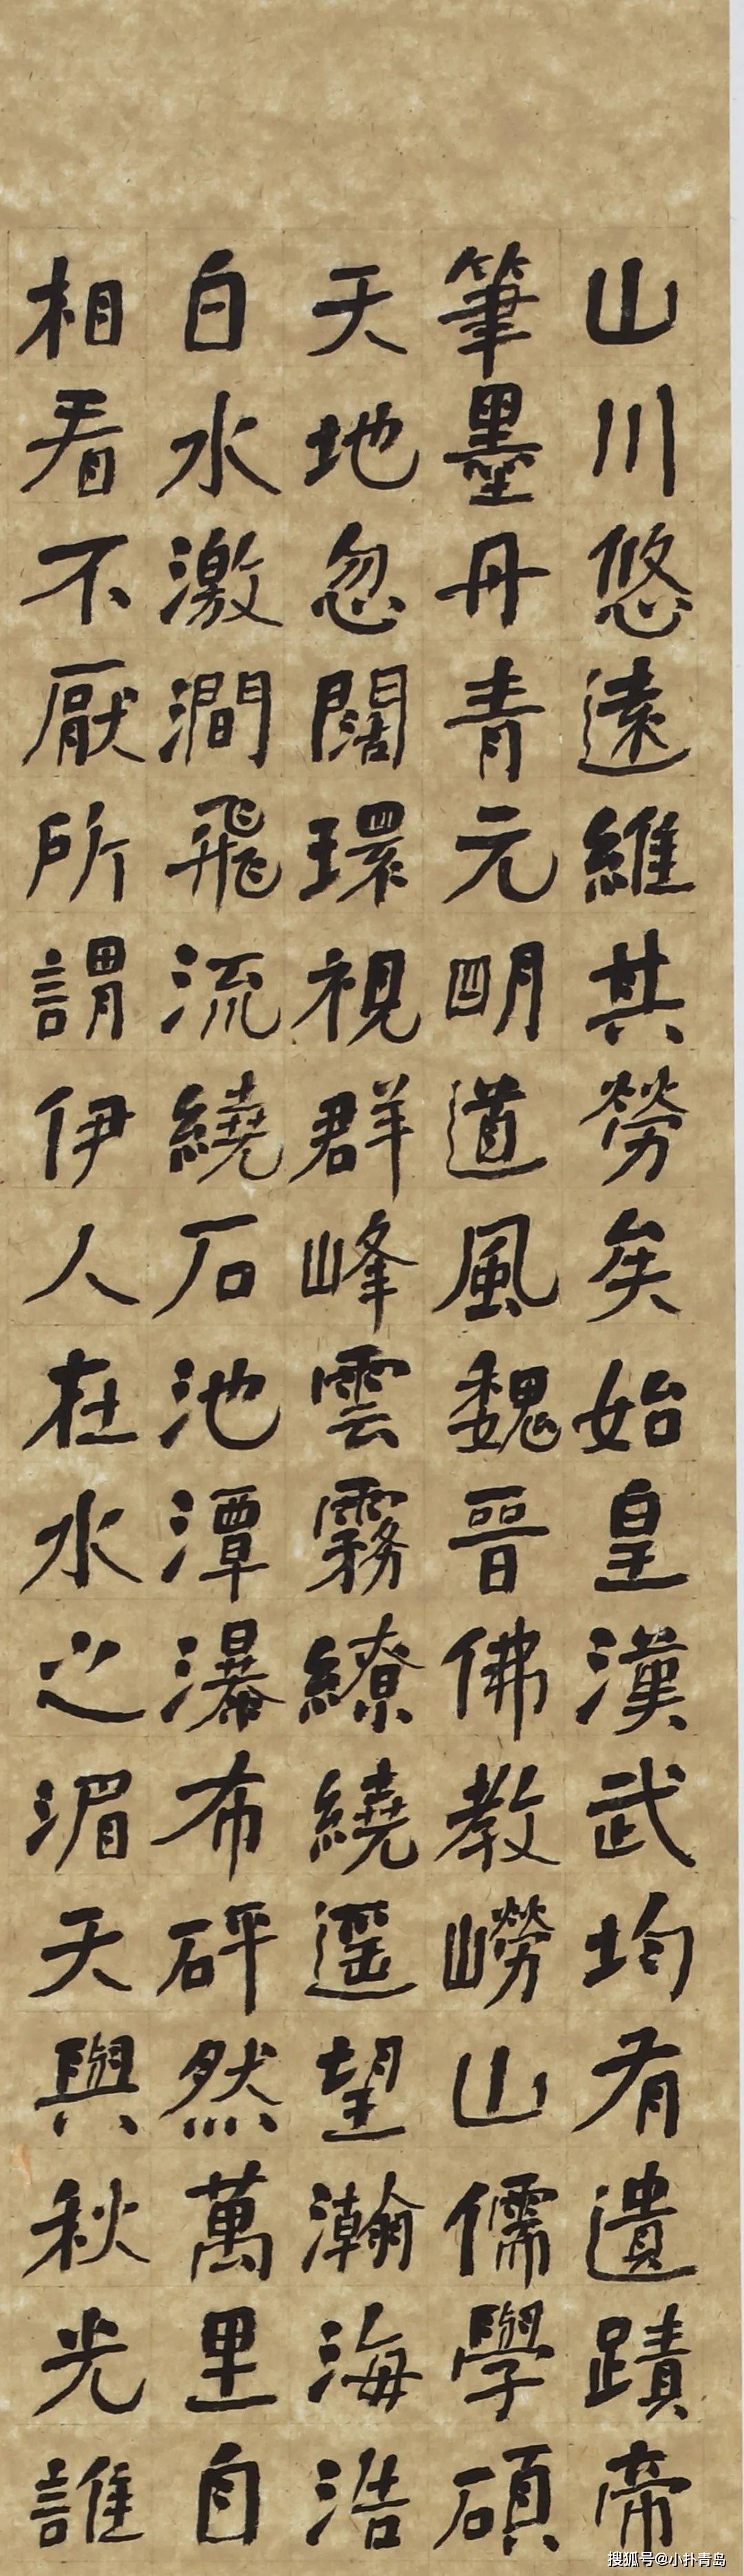 山川悠遠維其勞矣始皇漢武均有遺蹟帝
筆墨丹青元明道風魏晉佛教嶗山儒學碩
天地忽闊環視群峰雲霧繚繞遥望瀚海浩
白水激澗飛流繞石池潭瀑布砰然萬里自
相看不厭所謂伊人在水之湄天與秋光誰
搜狐号@小扑青岛